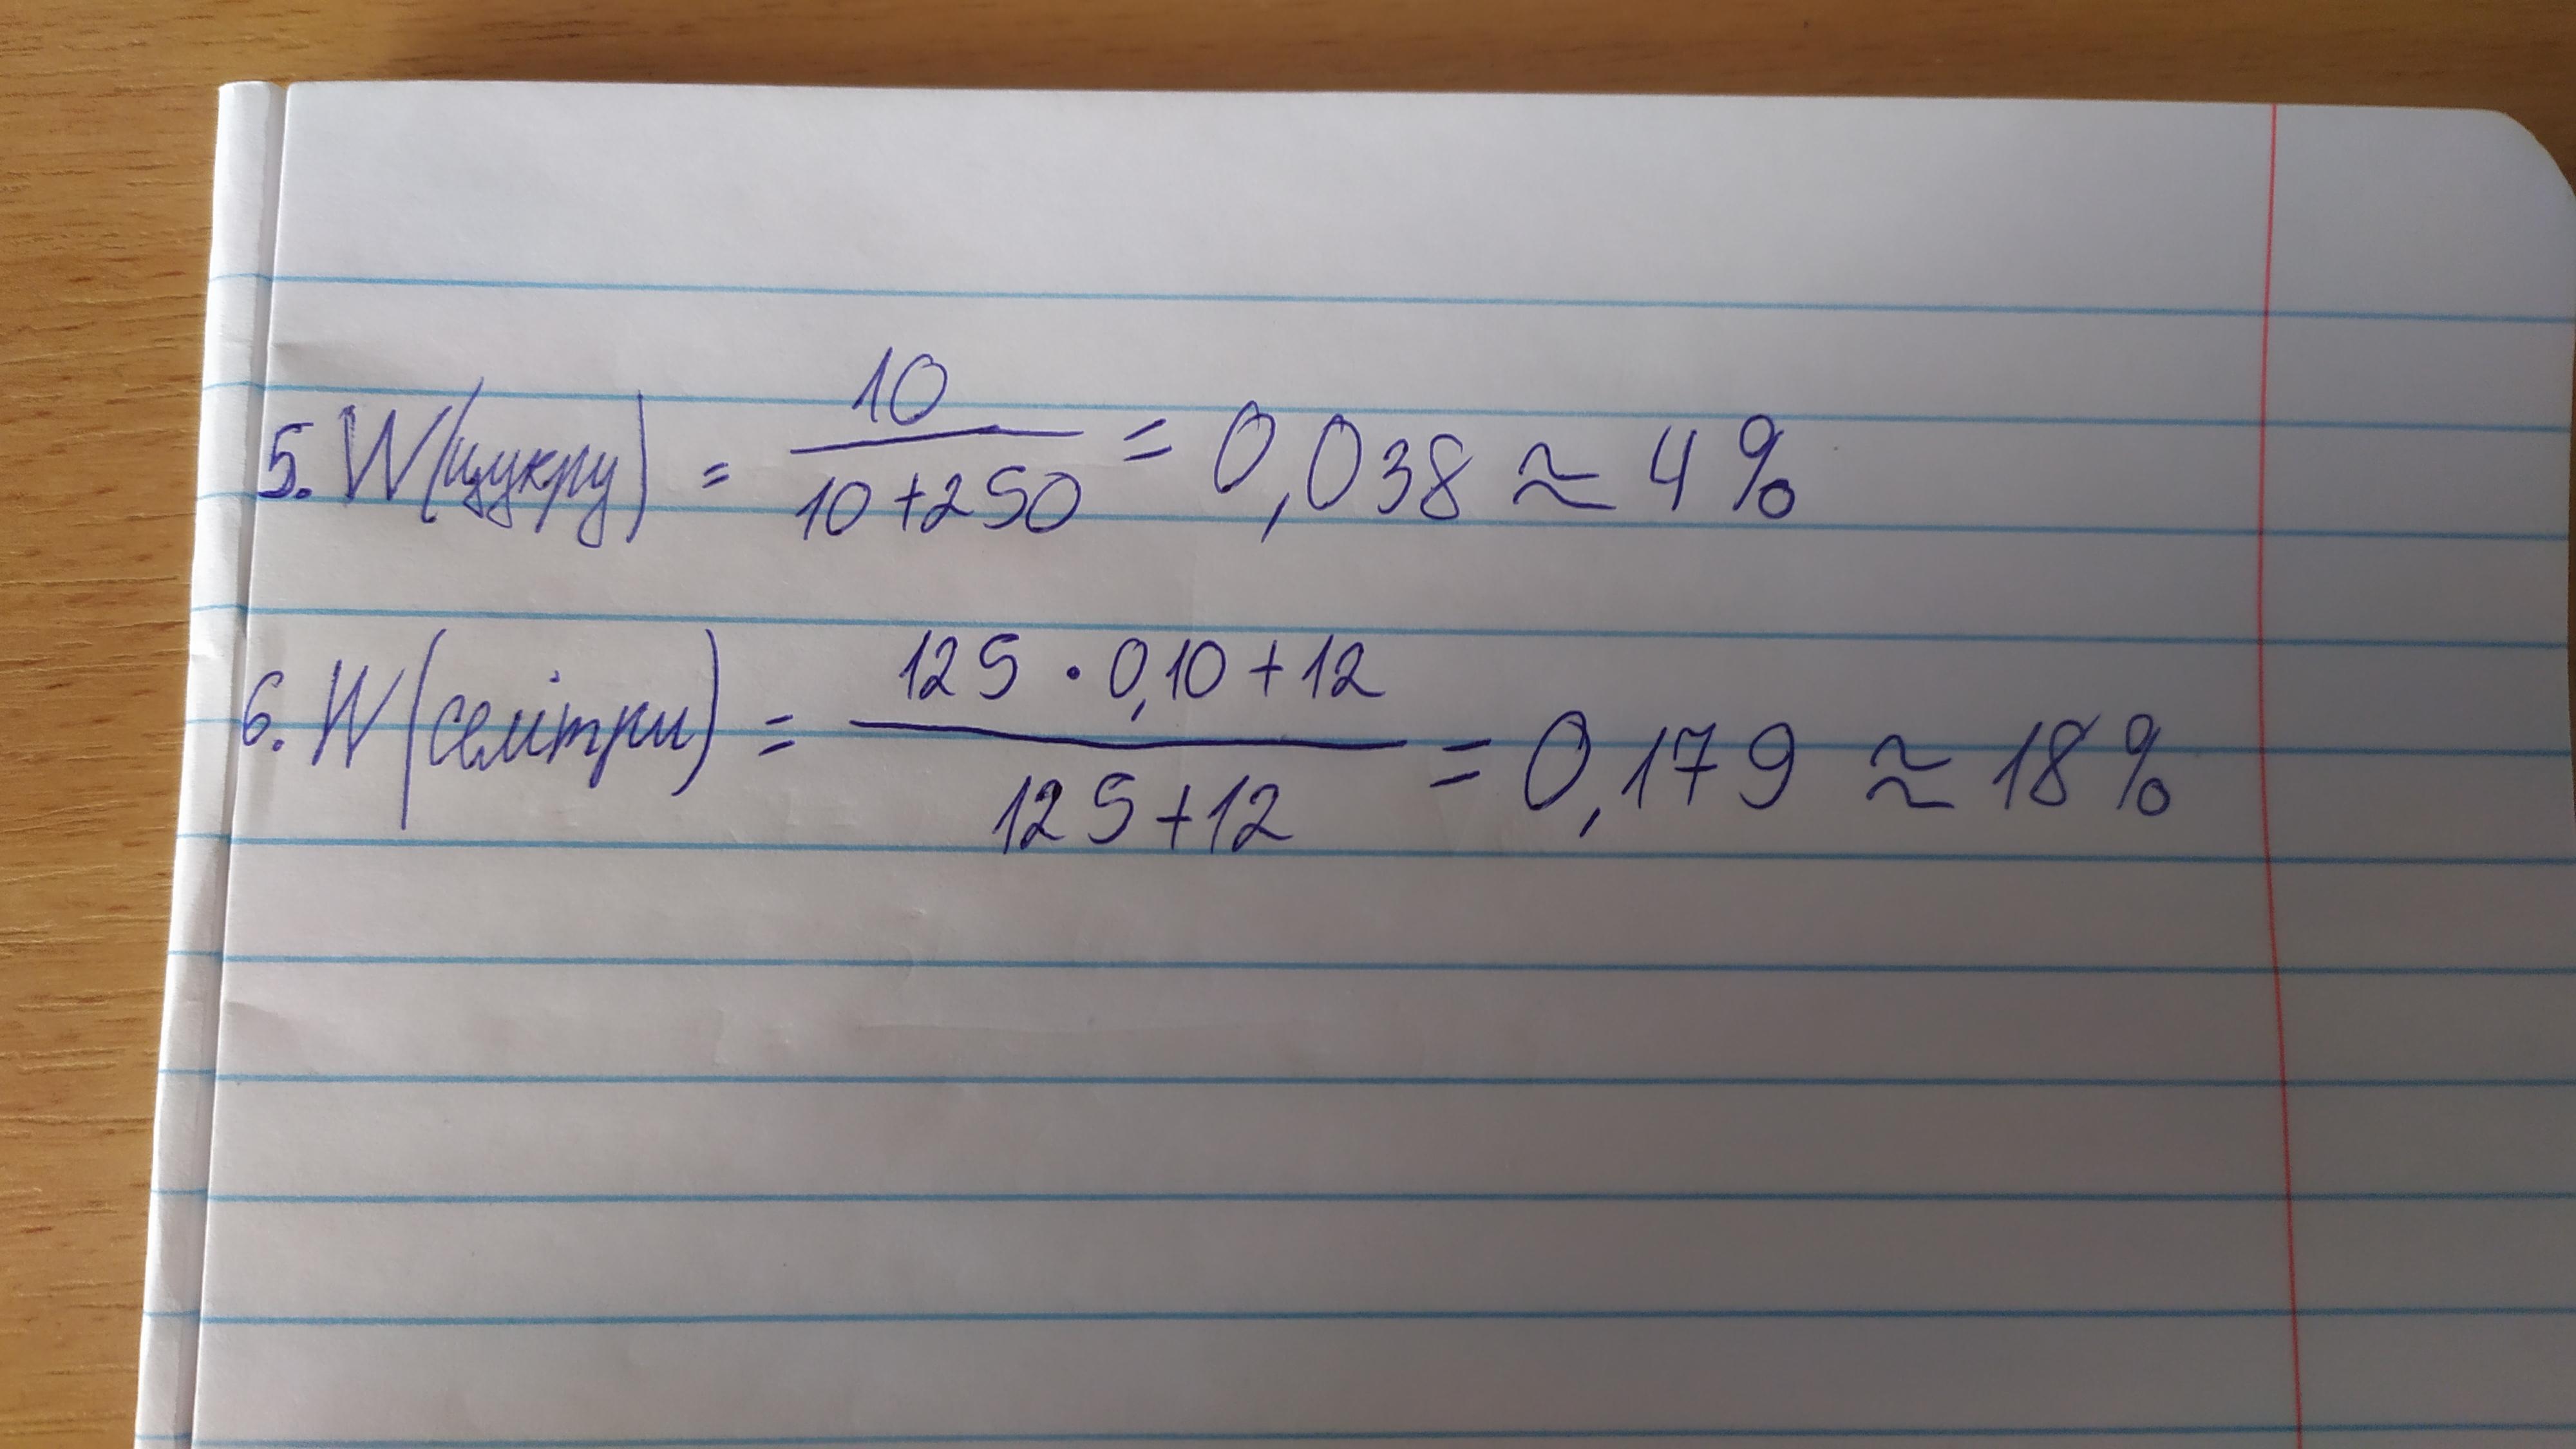 5. W(цукру) = 10 / 10+250 = 0,038 ≈ 4%
6. W(селітри) = 125 · 0,10+12 / 125+12 = 0,179 ≈ 18%